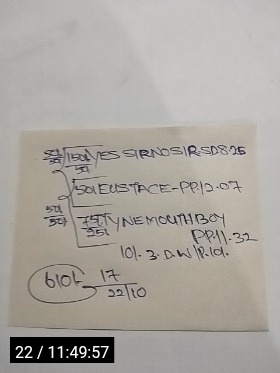 50/ 50/ 150/ YES SIRNOSIR-SD8.25
50/
50/ EUSTACE-PP12.07
50/ 50/ 75/ TYNEMOUTHBOY
25/ PP.11.32
10/. 3.D.W
610/- 17
22/10
22 / 11:49:57